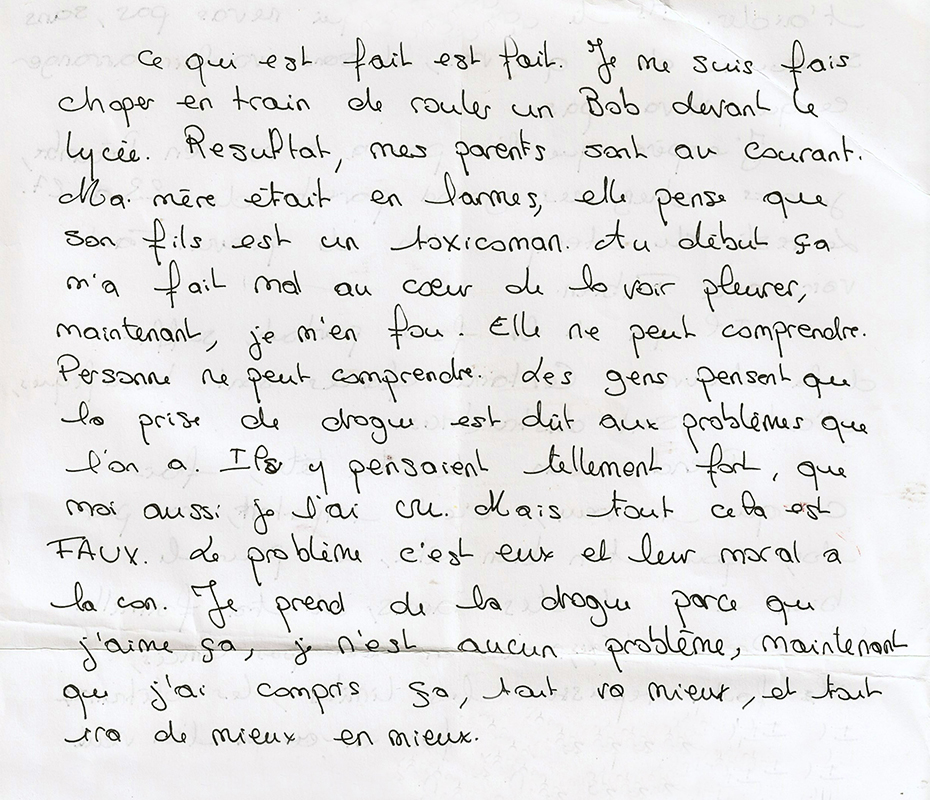 Ce qui est fait est fait. Je me suis fais
choper en train de rouler un Bob devant le
lycée. Resultat, mes parents sont au courant.
Ma mère était en larmes, elle pense que
son fils est un toxicoman. Au début ça
m'a fait mal au cœur de la voir pleurer,
maintenant, je m'en fou. Elle ne peut comprendre.
Personne ne peut comprendre... Les gens pensent que
la prise de drogue est dût aux problèmes que
l'on a. Ils y pensaient tellement fort, que
moi aussi je l'ai cru. Mais tout cela est
FAUX. Le problème c'est eux et leur moral a
la con. Je prend de la drogue parce que
j'aime ça, je n'est aucun problème, maintenant
que j'ai compris ça, tout va mieux, et tout
ira de mieux en mieux.